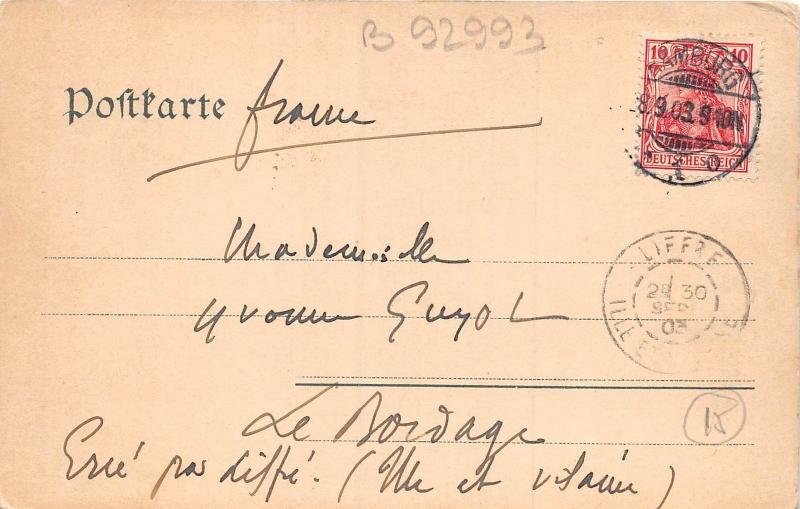 B 92993
10 10
HAMBURG
8.9.03.9-10N.
1
DEUTSCHES REICH
Postkarte france
LIFFRE
2E 30
SEPT
03
ILLE ET
Mademoiselle
Yvonne Guyot
Le Bordage
Ercé par Liffré. (Ille et vilaine)
15